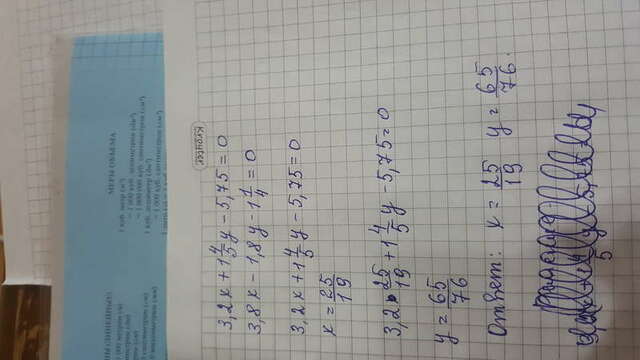 НЫ (ЛИНЕЙНЫЕ)
000 метров (м)
метров (см)
МЕРЫ ОБЪЕМА
1 куб. метр (м³)
= 1 000 куб. дециметров (дм³)
= 1 000 000 куб. сантиметров (см³)
1 куб. дециметр (дм³)
= 1 000 куб. сантиметров (см³)
3,2x + 1 4/5 y - 5,75 = 0
3,8x - 1,8y - 1 1/4 = 0
3,2x + 1 4/5 y - 5,75 = 0
x = 25/19
3,2 • 25/19 + 1 4/5 y - 5,75 = 0
y = 65/76
Ответ: x = 25/19 y = 65/76.